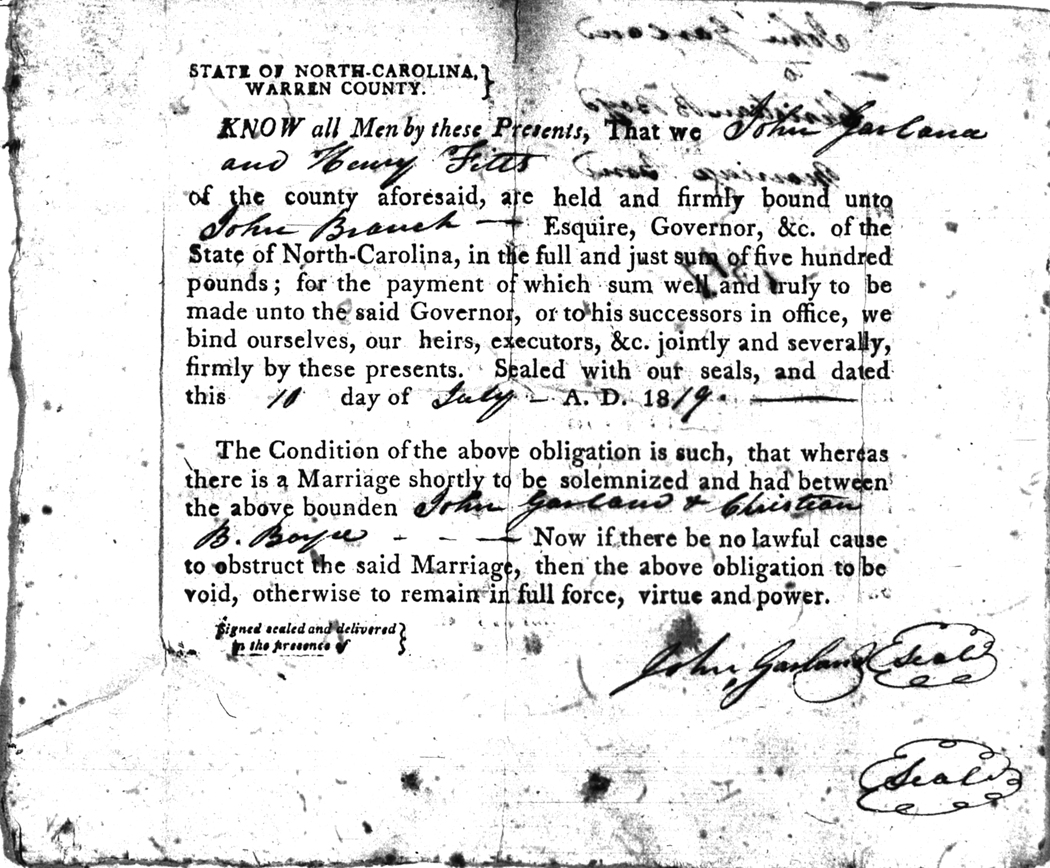 John Garland
STATE OF NORTH-CAROLINA,
WARREN COUNTY.
KNOW all Men by these Presents, That we John Garland
and Henry Fitts
of the county aforesaid, are held and firmly bound unto
John Branch Esquire, Governor, &c. of the
State of North-Carolina, in the full and just sum of five hundred
pounds; for the payment of which sum well and truly to be
made unto the said Governor, or to his successors in office, we
bind ourselves, our heirs, executors, &c. jointly and severally,
firmly by these presents. Sealed with our seals, and dated
this 10 day of July – A. D. 1819.
The Condition of the above obligation is such, that whereas
there is a Marriage shortly to be solemnized and had between
the above bounden John Garland & Christian
B. Boyd - - — Now if there be no lawful cause
to obstruct the said Marriage, then the above obligation to be
void, otherwise to remain in full force, virtue and power.
Signed sealed and delivered
in the presence of
John Garland Seal
Seal